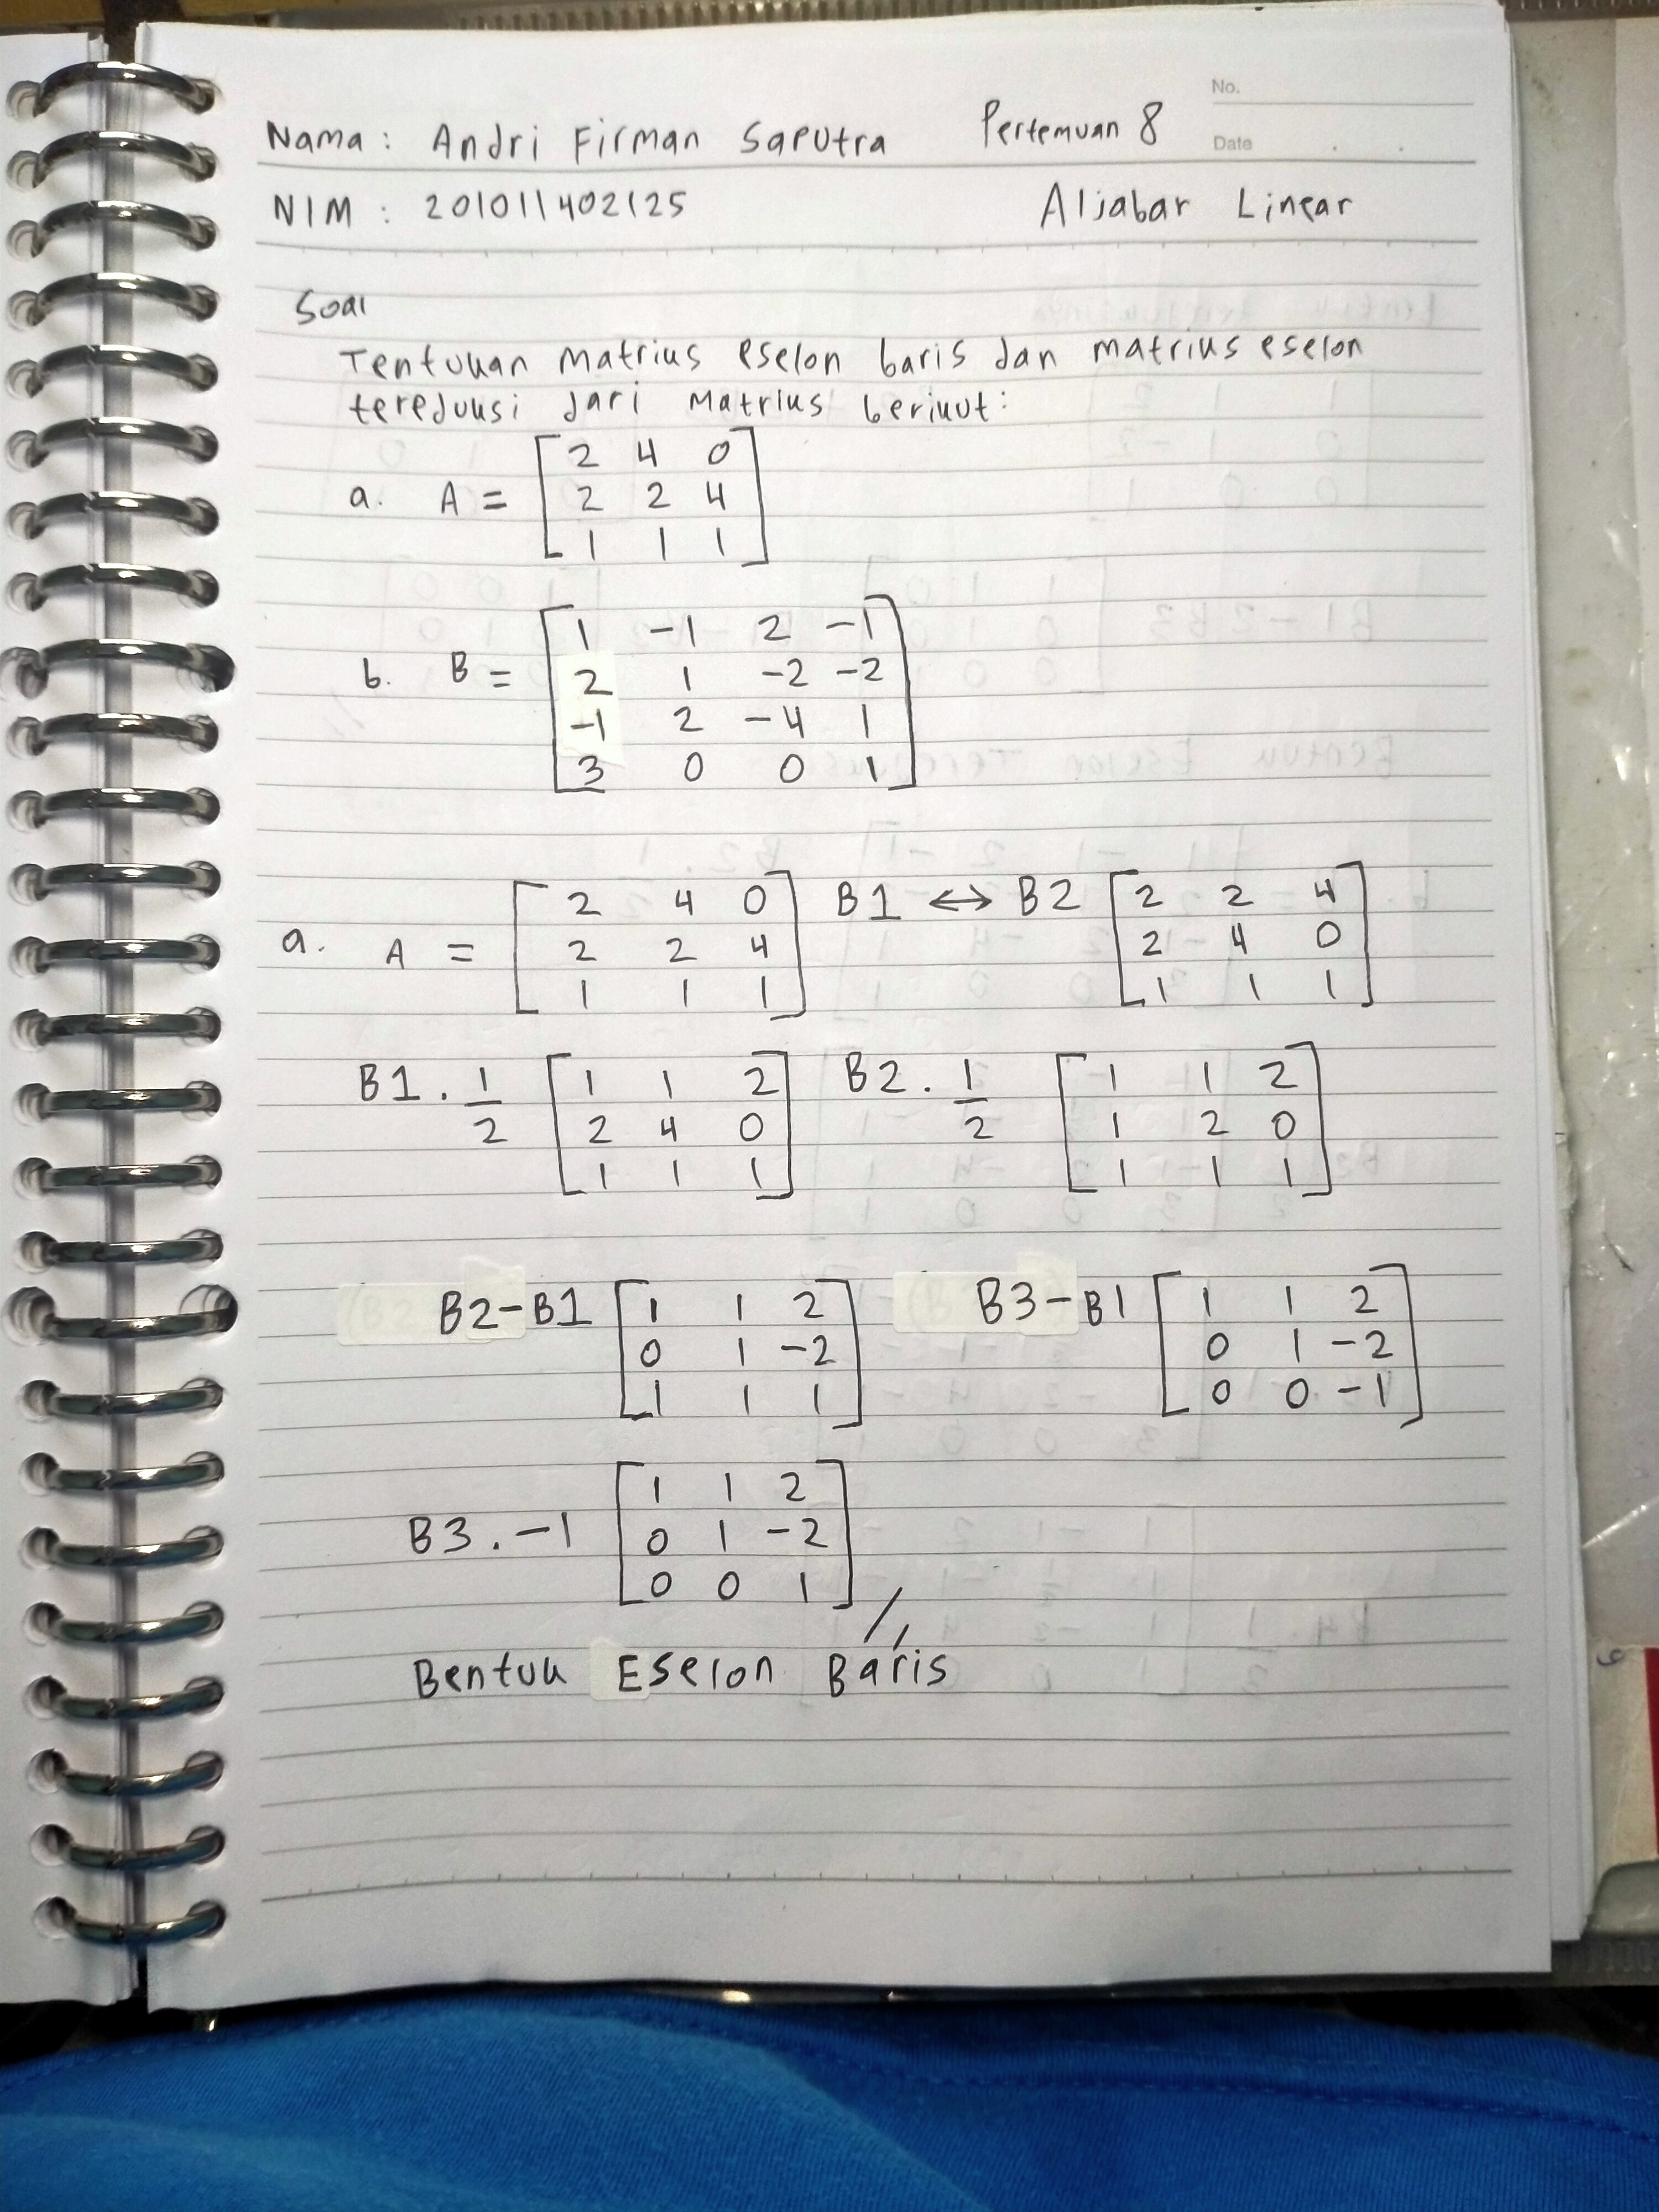 No.
Nama : Andri Firman Saputra Pertemuan 8
Date
NIM : 201011402125 Aljabar Linear
Soal
Tentukan matriks eselon baris dan matriks eselon
tereduksi dari Matriks berikut:
a. A = [2 4 0
2 2 4
1 1 1]
b. B = [1 -1 2 -1
2 1 -2 -2
-1 2 -4 1
3 0 0 1]
a. A = [2 4 0
2 2 4
1 1 1] B1 ↔ B2 [2 2 4
2 4 0
1 1 1]
B1 . 1/2 [1 1 2
2 4 0
1 1 1] B2 . 1/2 [1 1 2
1 2 0
1 1 1]
B2-B1 [1 1 2
0 1 -2
1 1 1] B3-B1 [1 1 2
0 1 -2
0 0 -1]
B3 . -1 [1 1 2
0 1 -2
0 0 1] //
Bentuk Eselon Baris